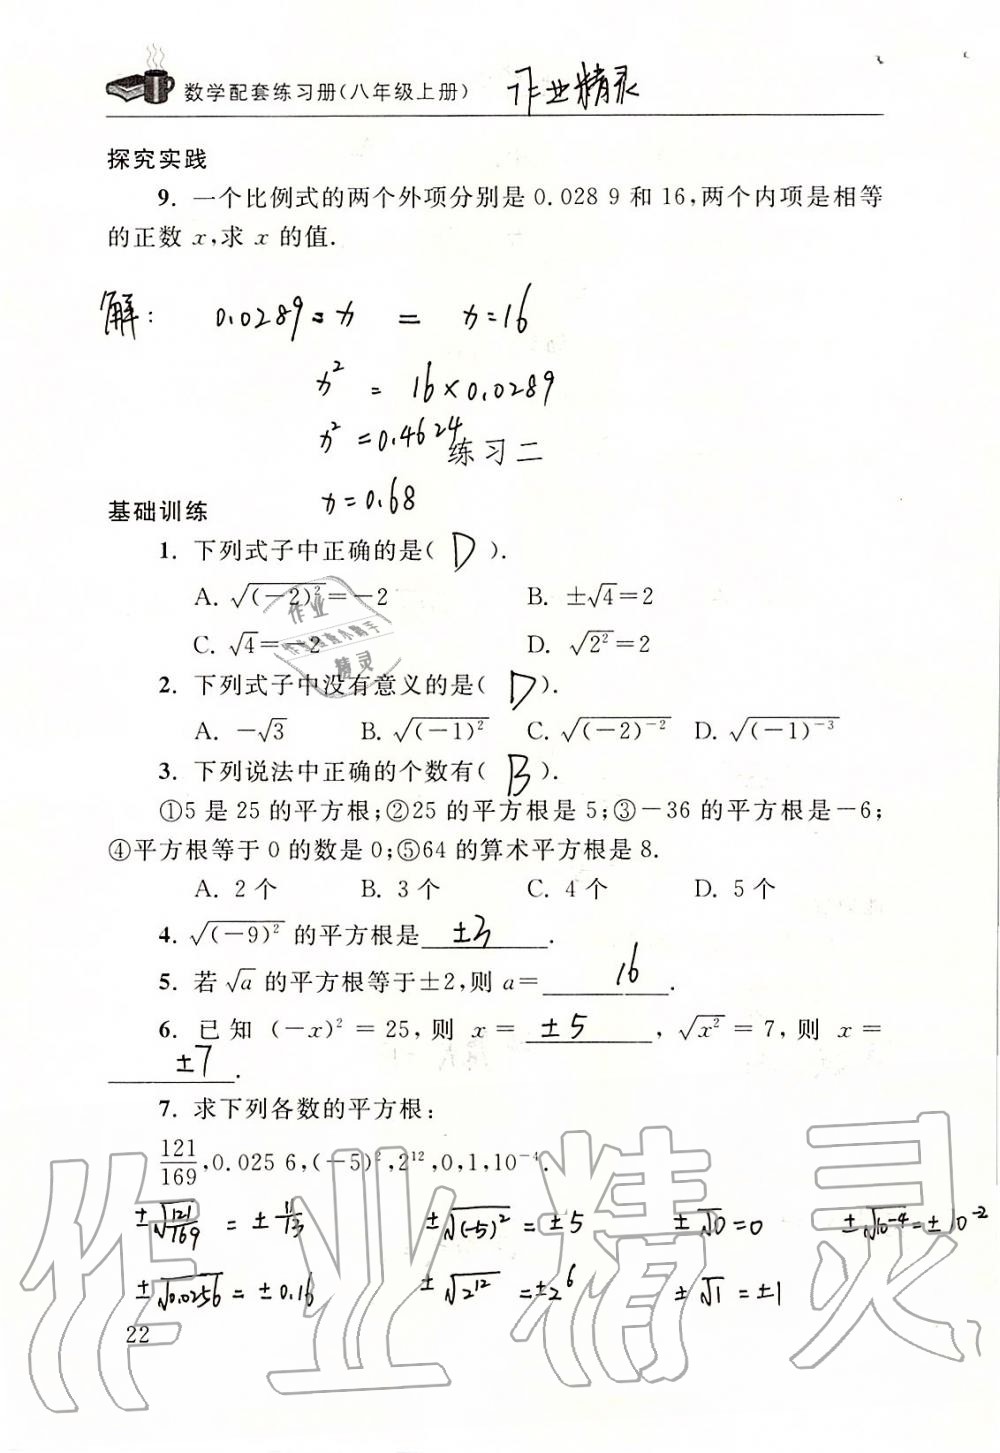 数学配套练习册(八年级上册) 作业精灵
探究实践
9. 一个比例式的两个外项分别是0.028 9和16,两个内项是相等
的正数x,求x的值.
解: 0.0289=x = x=16
x² = 16×0.0289
x² =0.4624
练习二
x=0.68
基础训练
1. 下列式子中正确的是( D ).
A. √(-2)²=-2 B. ±√4=2
C. √4=-2 D. √2²=2
2. 下列式子中没有意义的是( D ).
A. -√3 B. √(-1)² C. √(-2)⁻² D. √(-1)⁻³
3. 下列说法中正确的个数有( B ).
①5是25的平方根;②25的平方根是5;③-36的平方根是-6;
④平方根等于0的数是0;⑤64的算术平方根是8.
A. 2个 B. 3个 C. 4个 D. 5个
4. √(-9)² 的平方根是 ±3 .
5. 若√a的平方根等于±2,则a= 16 .
6. 已知(-x)²=25,则x= ±5 ,√x²=7,则x=
±7 .
7. 求下列各数的平方根:
121/169,0.025 6,(-5)²,2¹²,0,1,10⁻⁴.
±√121/169 = ±11/13 ±√(-5)² = ±5 ±√0=0 ±√10⁻⁴=±10⁻²
±√0.0256=±0.16 ±√2¹² =±2⁶ ±√1=±1
22
作业精灵
作业
作业检查小帮手
精灵